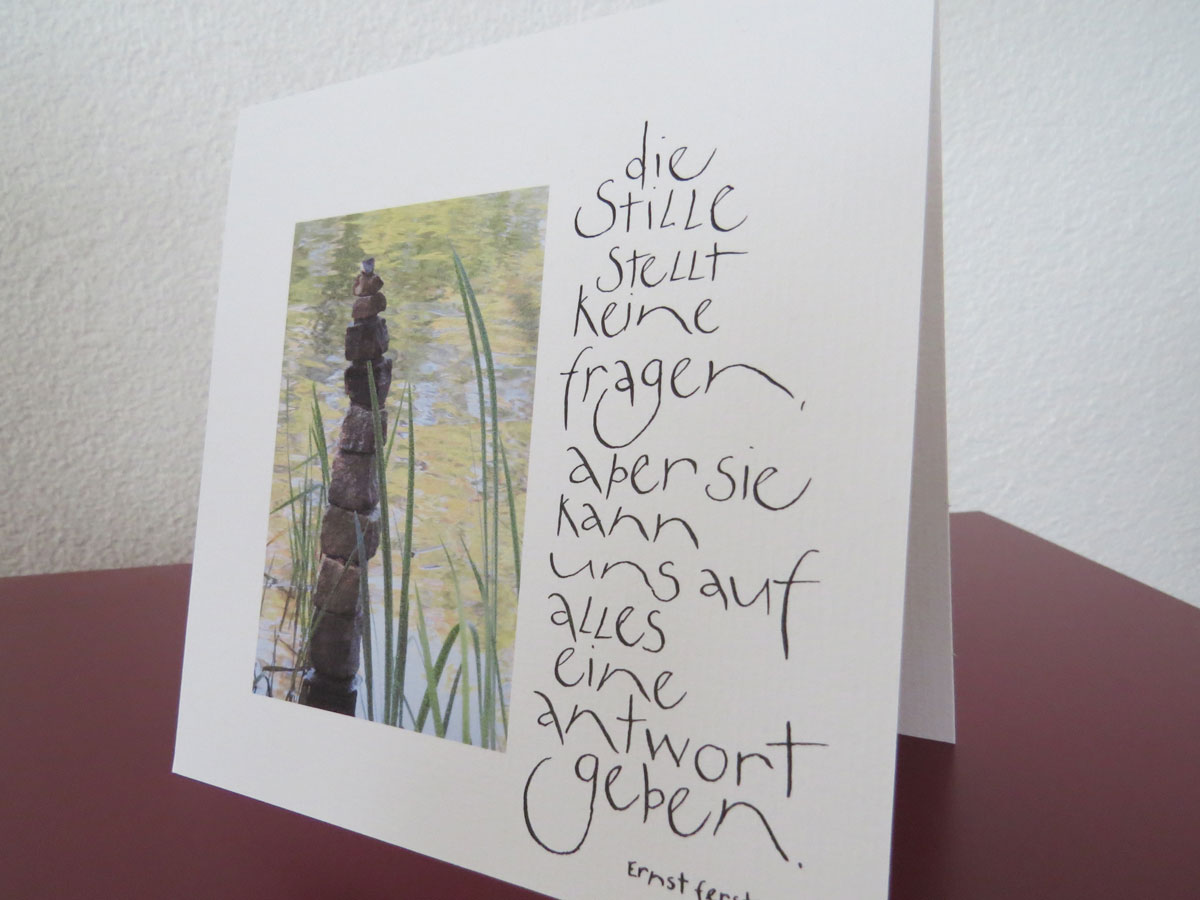 die
Stille
stellt
keine
fragen,
aber sie
kann
uns auf
alles
eine
antwort
geben.
Ernst